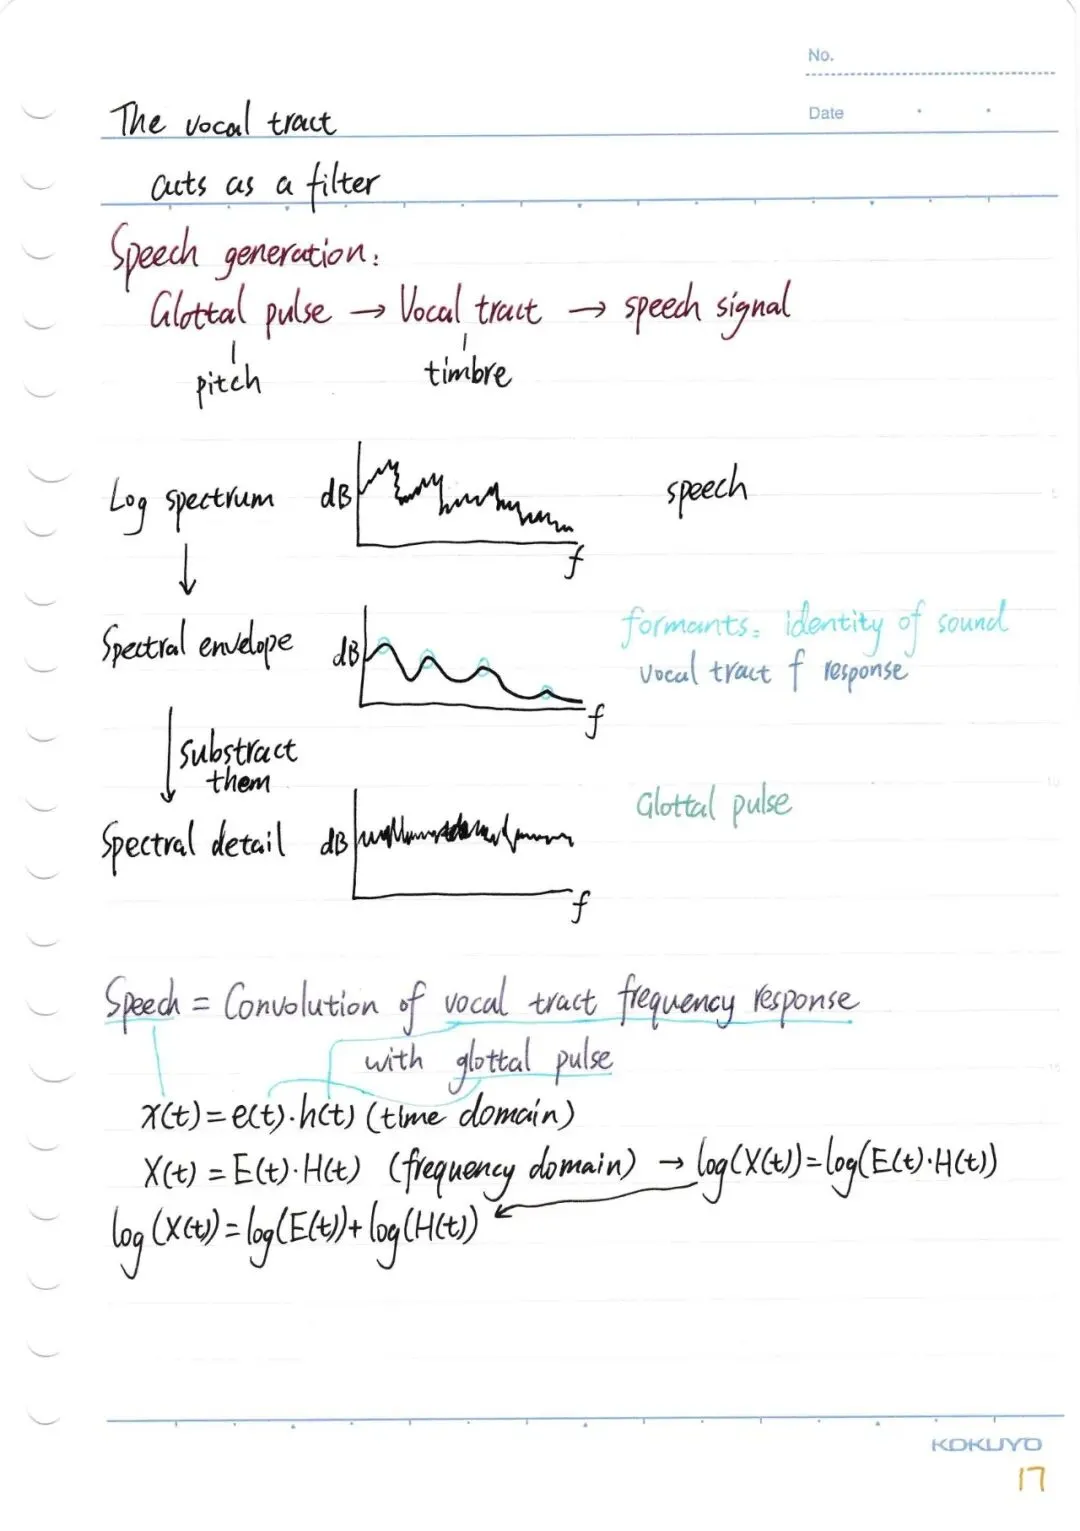 No.
Date
The vocal tract
acts as a filter
Speech generation:
Glottal pulse → Vocal tract → speech signal
pitch timbre
Log spectrum dB f speech
Spectral envelope dB f formants: identity of sound
vocal tract f response
substract
them
Glottal pulse
Spectral detail dB f
Speech = Convolution of vocal tract frequency response
with glottal pulse
x(t)=e(t)·h(t) (time domain)
X(t)=E(t)·H(t) (frequency domain) → log(X(t))=log(E(t)·H(t))
log(X(t))=log(E(t))+log(H(t))
KOKUYO
17